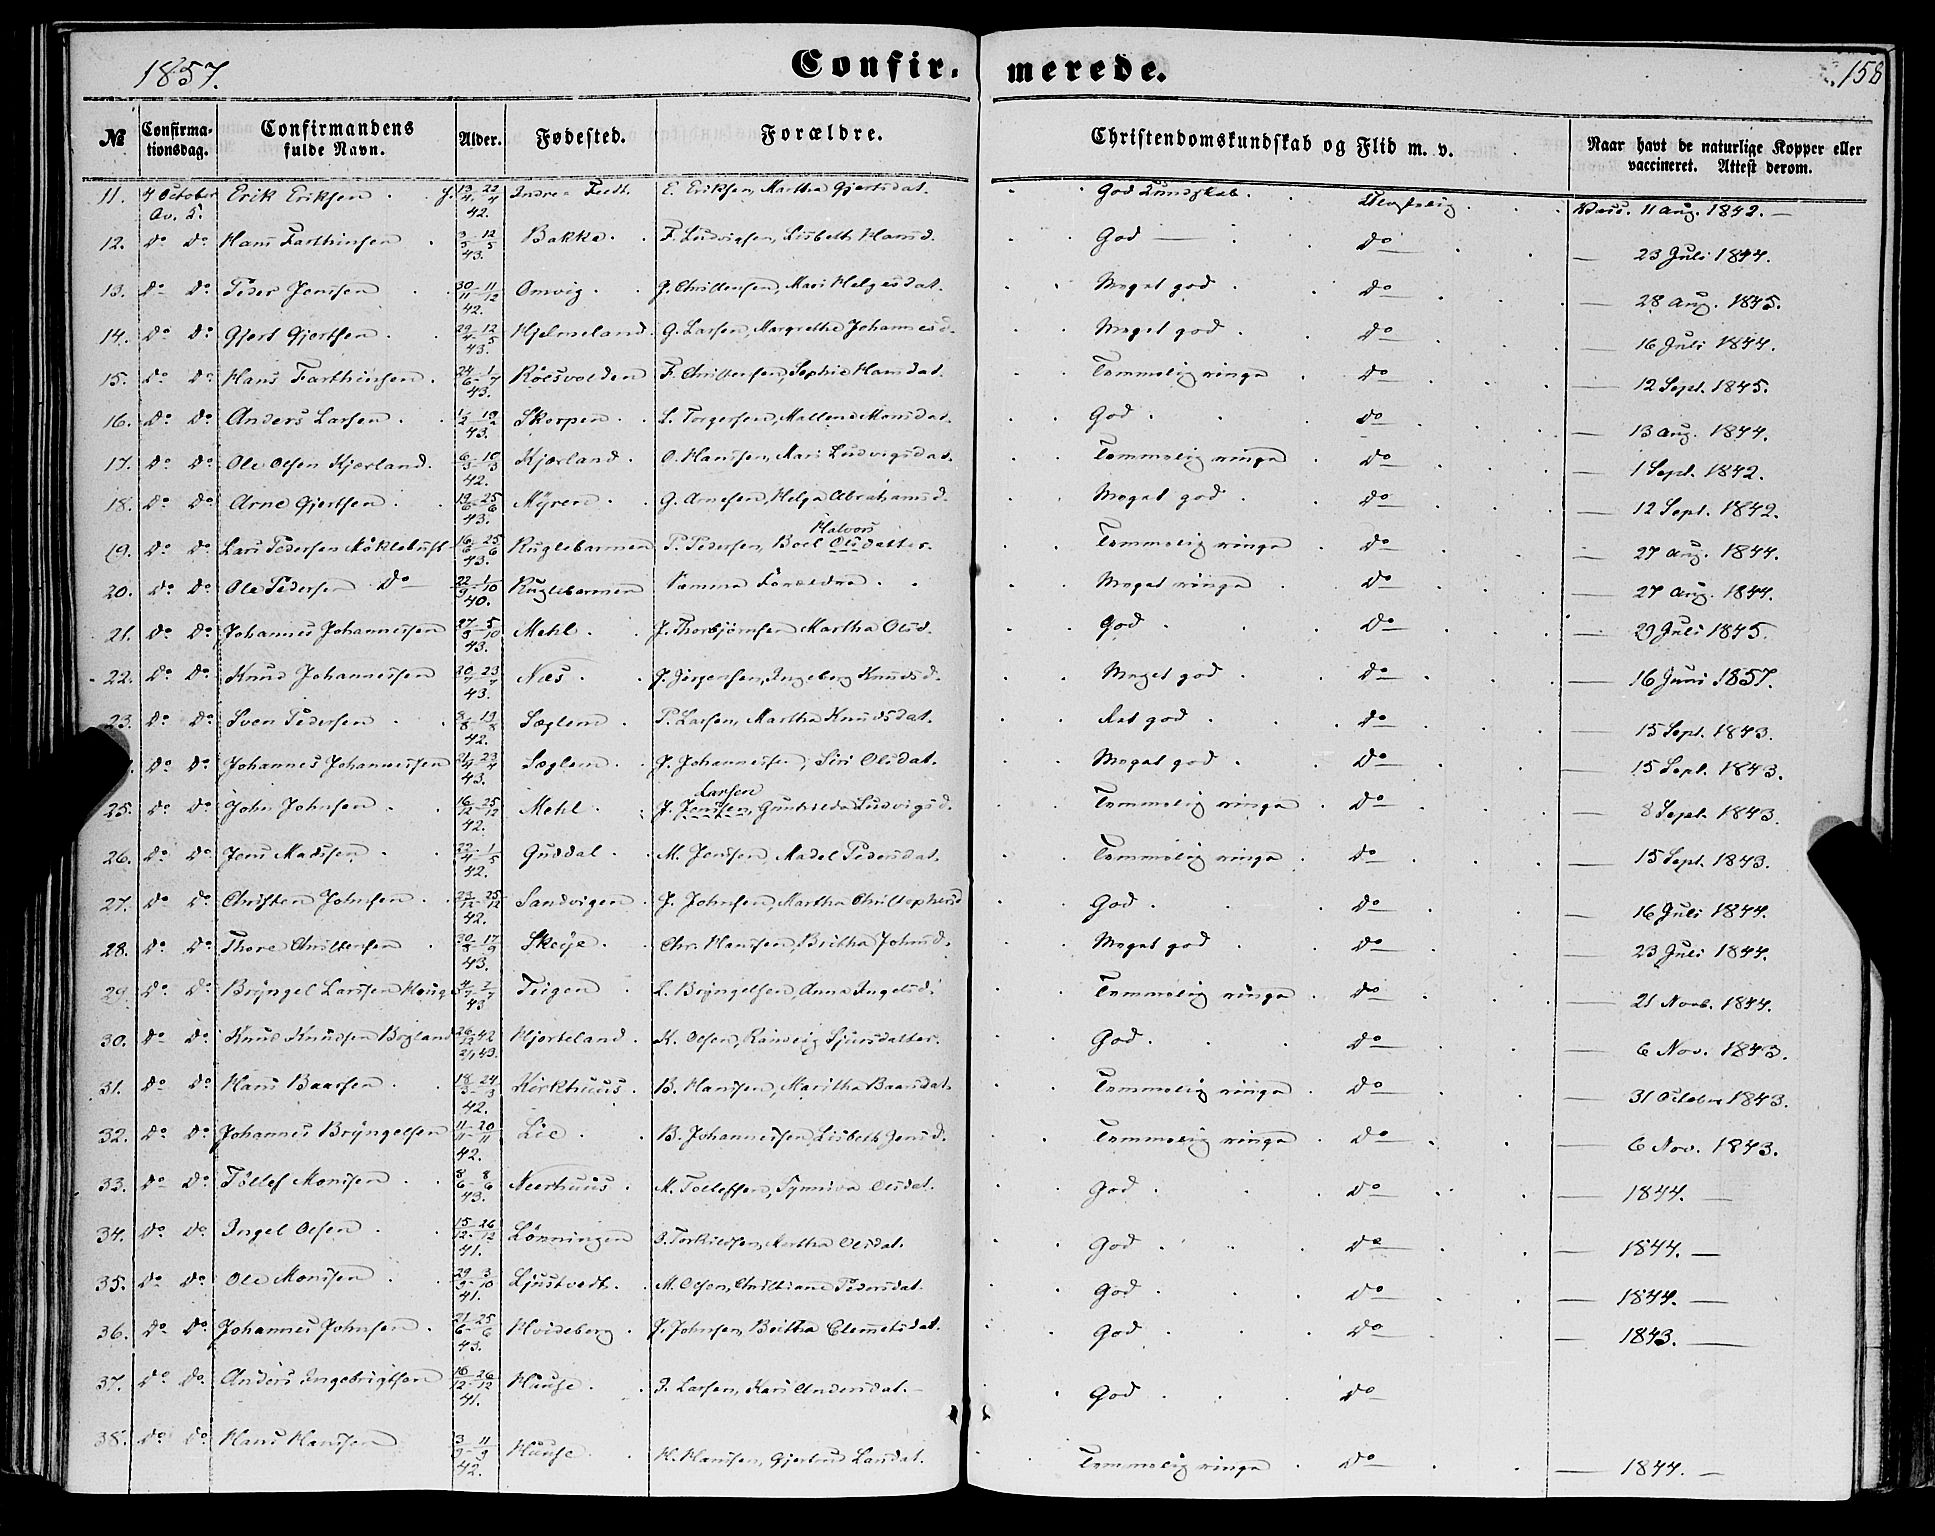 1857.
Confir-merede.
158
№ Confirma-tionsdag. Confirmandens fulde Navn. Alder. Fødested. Forældre. Christendomskundskab og Flid m. v. Naar havt de naturlige Kopper eller vaccineret. Attest derom.
11. 4 October Erik Eriksen 42. Indre E. Eriksen, Martha Gjertsdat. God Kundskab. Vacc. 11 Aug. 1842.
12. Do Do Hans Farthinsen 3/5 12/5 43. Bakke F. Ludvigsen, Lisbeth Hansd. God Do 23 Juli 1844.
13. Do Do Peder Jensen 30/11 11/12 42. Omvig J. Christensen, Mari Helgesdat. Meget god Do 28 Aug. 1845.
14. Do Do Gjert Gjertsen 29/4 12/5 43. Hjelmeland G. Larsen, Margrethe Johannesd. Meget god Do 16 Juli 1844.
15. Do Do Hans Farthinsen 24/6 1/7 43. Røesvolden F. Christensen, Sophie Hansdat. Temmelig ringe Do 12 Sept. 1845.
16. Do Do Anders Larsen 1/2 19/2 43. Skorpen L. Torgersen, Mallene Monsdat. God Do 13 Aug. 1844.
17. Do Do Ole Olsen Kjærland 6/3 10/3 42. Kjærland O. Hanssen, Mari Ludvigsdat. Temmelig ringe Do 1 Sept. 1842.
18. Do Do Arne Gjertsen 19/6 25/6 43. Myren G. Arnesen, Helga Abrahamsd. Meget god Do 12 Sept. 1842.
19. Do Do Lars Pedersen Møklebust 16/6 25/6 43. Ruglebarmen P. Pedersen, Boel Halvors Olsdatter. Temmelig ringe Do 27 Aug. 1844.
20. Do Do Ole Pedersen Do 22/9 1/10 40. Ruglebarmen Samme Forældre Meget ringe Do 27 Aug. 1844.
21. Do Do Johannes Johannessen 27/9 5/10 43. Mehl J. Thorbjørnsen Martha Olsd. God Do 29 Juli 1845.
22. Do Do Knud Johannessen 20/7 23/7 43. Næs J. Jørgensen, Ingeborg Knudsd. Meget god Do 16 Juni 1857.
23. Do Do Sven Pedersen 8/8 13/8 42. Sæglem P. Larsen, Martha Knudsdat. Ret god Do 15 Sept. 1843.
Do Do Johannes Johannessen 21/4 23/4 43. Sæglem J. Johannessen, Siri Olsdat. Meget god Do 15 Sept. 1843.
25. Do Do John Johnsen 16/12 25/12 42. Mehl J. Larsen Jensen, Gunhilda Ludvigsd. Temmelig ringe Do 8 Sept. 1843.
26. Do Do Jens Madssen 22/4 1/5 42. Guddal M. Jenssen, Madel Pedersdat. Temmelig ringe Do 15 Sept. 1843.
27. Do Do Christen Johnsen 23/12 25/12 42. Sandvigen J. Johnsen, Martha Christophersd God Do 16 Juli 1844.
28. Do Do Thore Christensen 30/8 17/9 43. Skeije Chr. Hanssen, Britha Johnsd. Meget god Do 23 Juli 1844.
29. Do Do Bryngel Larssen Haug 4/7 2/7 43 Teigen L. Bryngelsen, Anna Ingelsd. Temmelig ringe Do 21 Novb. 1844.
30. Do Do Knud Knudsen Bogland 26/12 42 2/1 43. Hjorteland K. Olsen, Ranveig Sjursdatter. God Do 6 Nov. 1843.
31. Do Do Hans Baarsen 18/3 24/3 42. Kirkhuus B. Hanssen, Maritha Baarsdat. Temmelig ringe Do 31 October 1843.
32. Do Do Johannes Bryngelsen 11/11 20/11 42. Lie B. Johannessen, Lisbeth Jensd. Temmelig ringe Do 6 Nov. 1843.
33. Do Do Tollef Monssen 3/6 8/6 43. Neerhuus M. Tolleffsen, Synniva Olsdat. God Do 1844.
34. Do Do Ingel Olsen 15/12 26/12 41. Lønningen O. Torkildsen, Martha Olsdat. God Do 1844.
35. Do Do Ole Monssen 29/9 3/10 41. Ljustvedt M. Olsen, Christiane Pedersdat. God Do 1844.
36. Do Do Johannes Johnsen 21/6 25/6 43. Hvideberg J. Johnsen, Britha Clemetsdat. God Do 1843.
37. Do Do Anders Ingebrigtsen 16/12 26/12 41. Hauge I. Larsen, Kari Andersdat. God Do
38. Do Do Hans Hanssen 3/9 11/9 42. Hauge H. Hanssen, Gjertrud Larsdat. Temmelig ringe Do 1844.